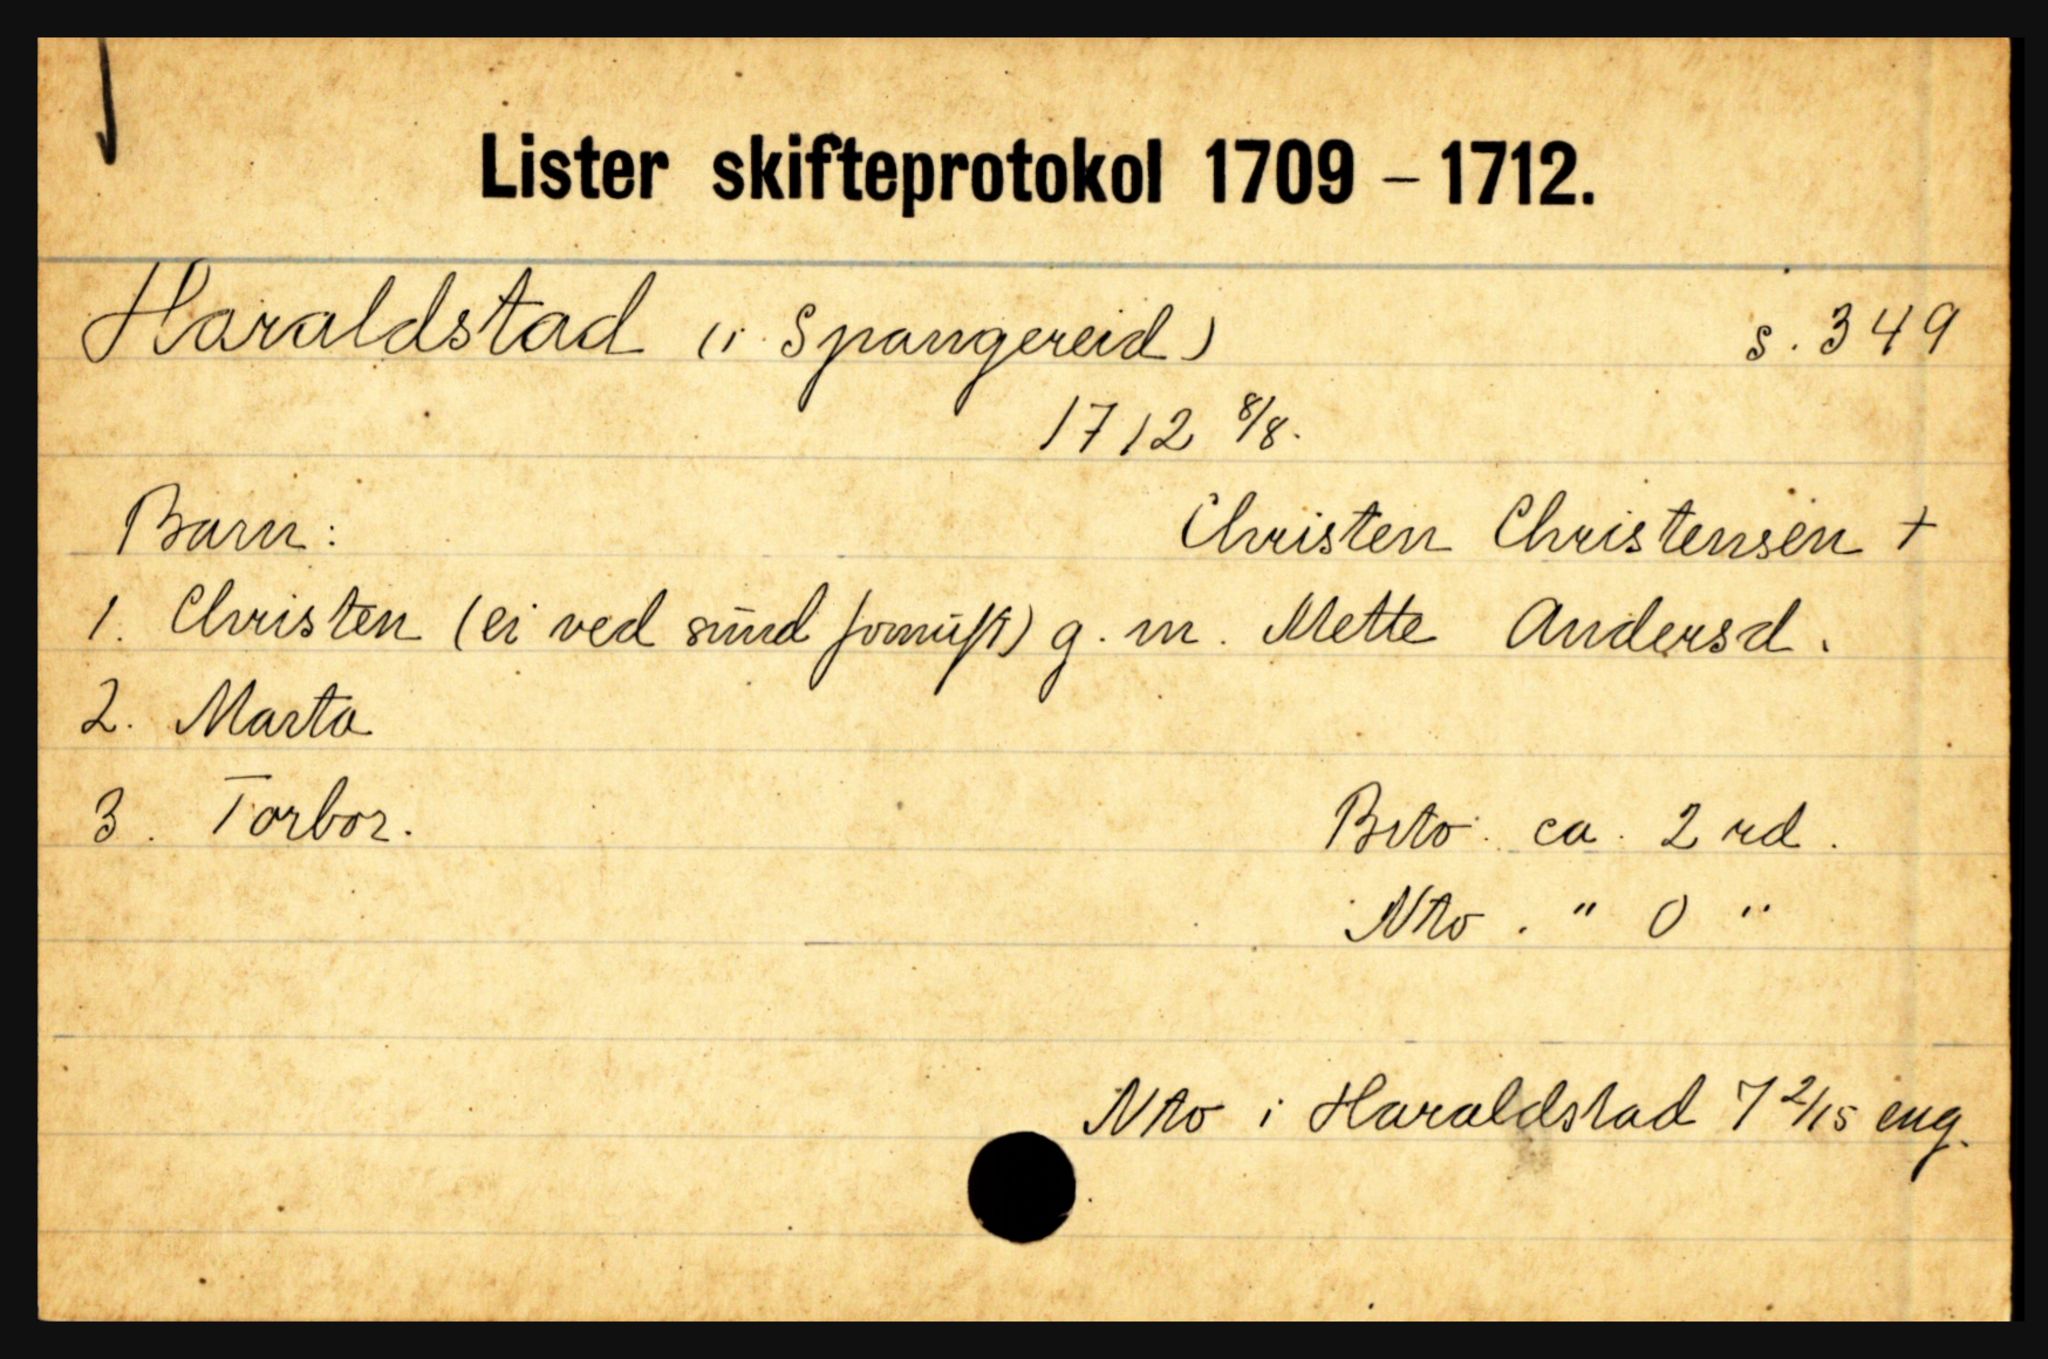 Lister skifteprotokol 1709 – 1712.
Haraldstad (i Spangereid) s. 349
1712 8/8.
Barn: Christen Christensen +
1. Christen (ei ved sund fornuft) g. m. Mette Andersd.
2. Marta
3. Torbor. Brto. ca. 2 rd.
Nto. " 0 "
Nto i Haraldstad 7 2/15 eng.